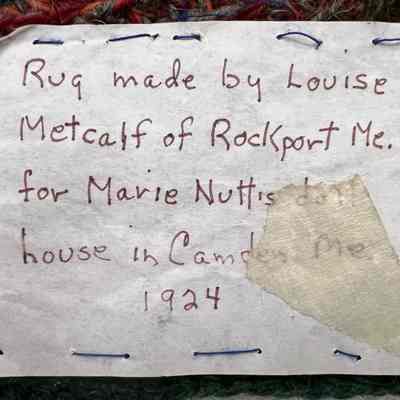 Rug made by Louise
Metcalf of Rockport Me.
for Marie Nutt's doll
house in Camden Me.
1924